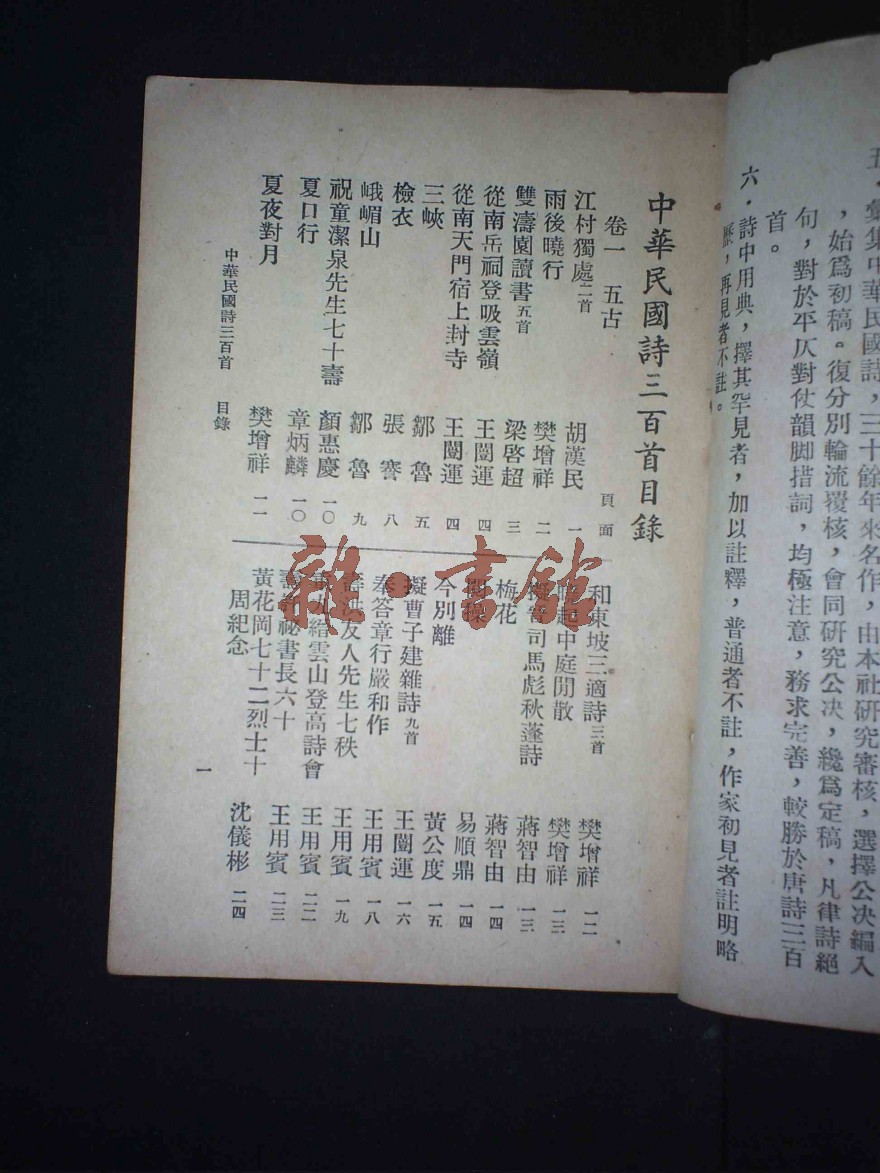 五．彙集中華民國詩，三十餘年來名作，由本社研究審核，選擇公决編入
，始爲初稿。復分別輪流覆核，會同研究公决，纔爲定稿，凡律詩絕
句，對於平仄對仗韻脚措詞，均極注意，務求完善，較勝於唐詩三百
首。
六．詩中用典，擇其罕見者，加以註釋，普通者不註，作家初見者註明略
歷，再見者不註。
中華民國詩三百首目錄
頁面
卷一 五古
江村獨處二首 胡漢民 一
雨後曉行 樊增祥 二
雙濤園讀書五首 梁啓超 三
從南岳祠登吸雲嶺 王闓運 四
從南天門宿上封寺 王闓運 四
三峽 鄒魯 五
檢衣 張謇 八
峨嵋山 鄒魯 九
祝童潔泉先生七十壽 顏惠慶 一〇
夏口行 章炳麟 一〇
夏夜對月 樊增祥 一一
和東坡三適詩三首 樊增祥 一二
起中庭閒散 樊增祥 一三
司馬彪秋蓬詩 蔣智由 一三
梅花 蔣智由 一四
易順鼎 一四
今別離 黃公度 一五
擬曹子建雜詩九首 王闓運 一六
奉答章行嚴和作 王用賓 一八
友人先生七秩 王用賓 一九
縉雲山登高詩會 王用賓 二二
祕書長六十 王用賓 二三
黃花岡七十二烈士十
周紀念 沈儀彬 二四
中華民國詩三百首 目錄
一
雜·書館